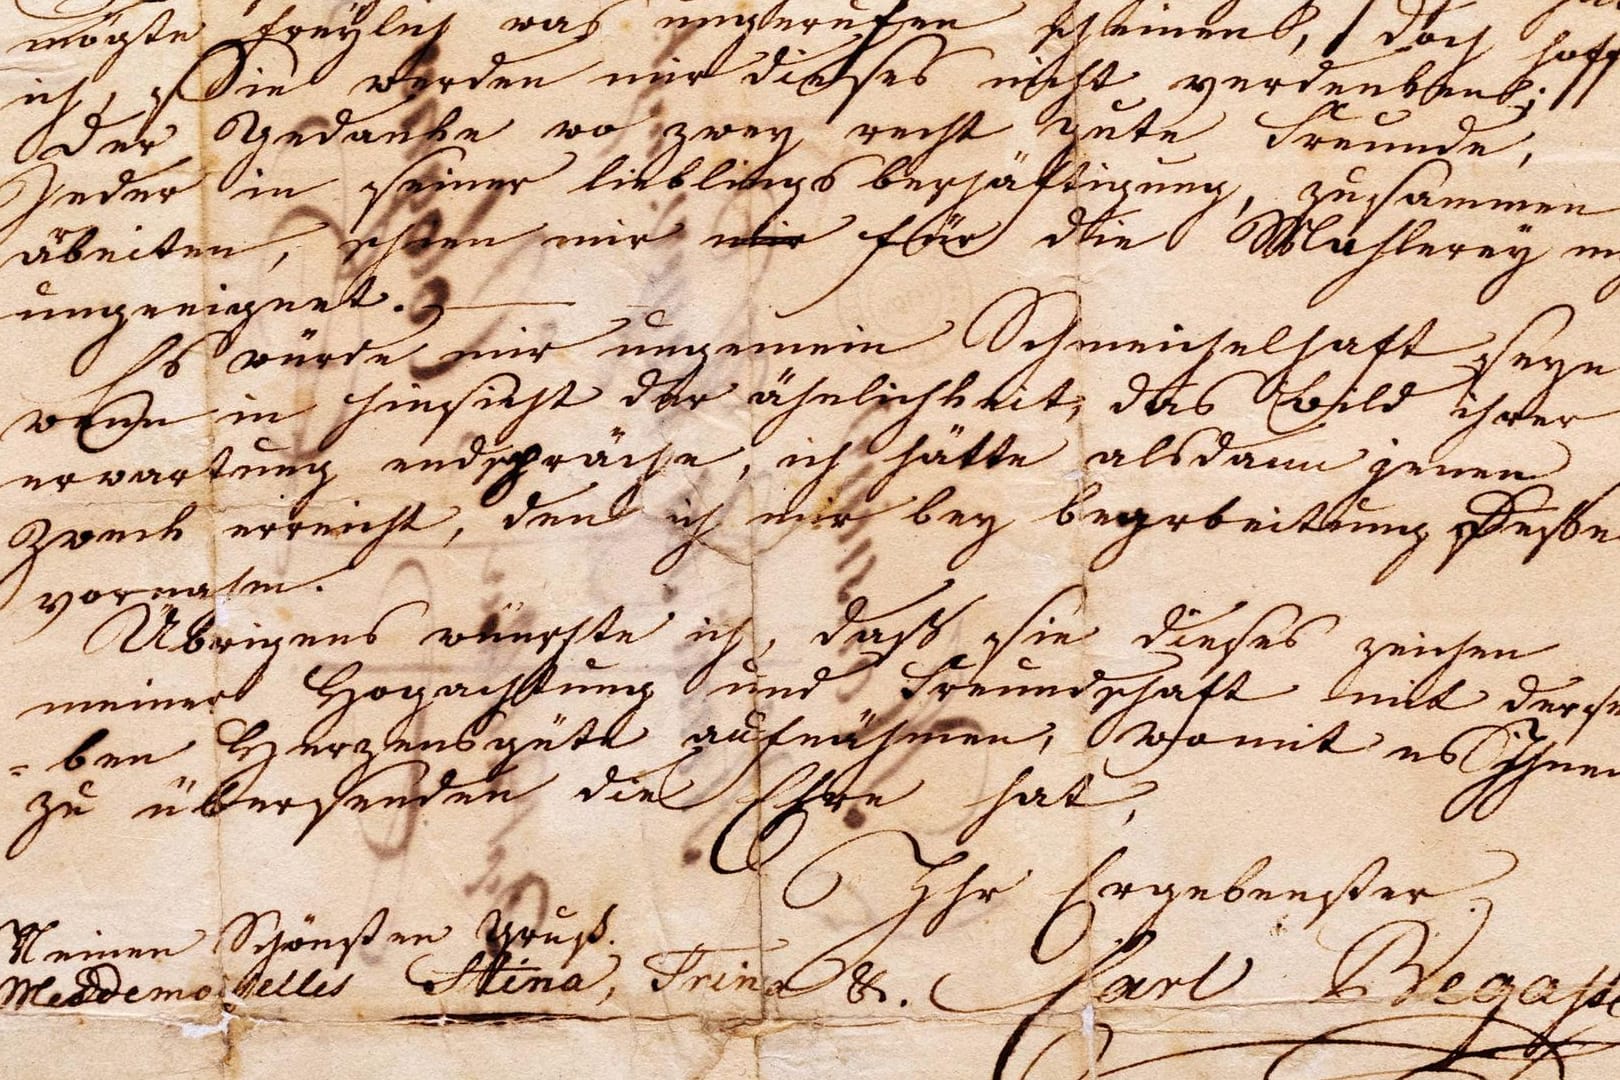 mögte freylich was ungerufen scheinen, doch hoff
ich, Sie werden mir dieses nicht verdenken;
der Gedanke wo zwey recht gute Freunde,
Jeder in seiner lieblings beschäftigung, zusammen
arbeiten, schien mir mir für die Mahlerey
ungeeignet.
Es würde mir ungemein Schmeichelhaft seyn
wenn in hinsicht der ähnlichkeit, das Bild ihrer
erwartung endspräche, ich hätte alsdann jenen
Zweck erreicht, den ich mir bey bearbeitung deße
vornahm.
Übrigens wünschte ich, daß sie dieses zeichen
meiner Hogachtung und Freundschaft mit derse
=ben Herzensgüte aufnähmen, womit es Ihnen
zu übersenden die Ehre hat,
Ihr Ergebenster
Meinen Schönsten Gruß.
Meddemoiselles Stina, Trina &. Carl Begaße